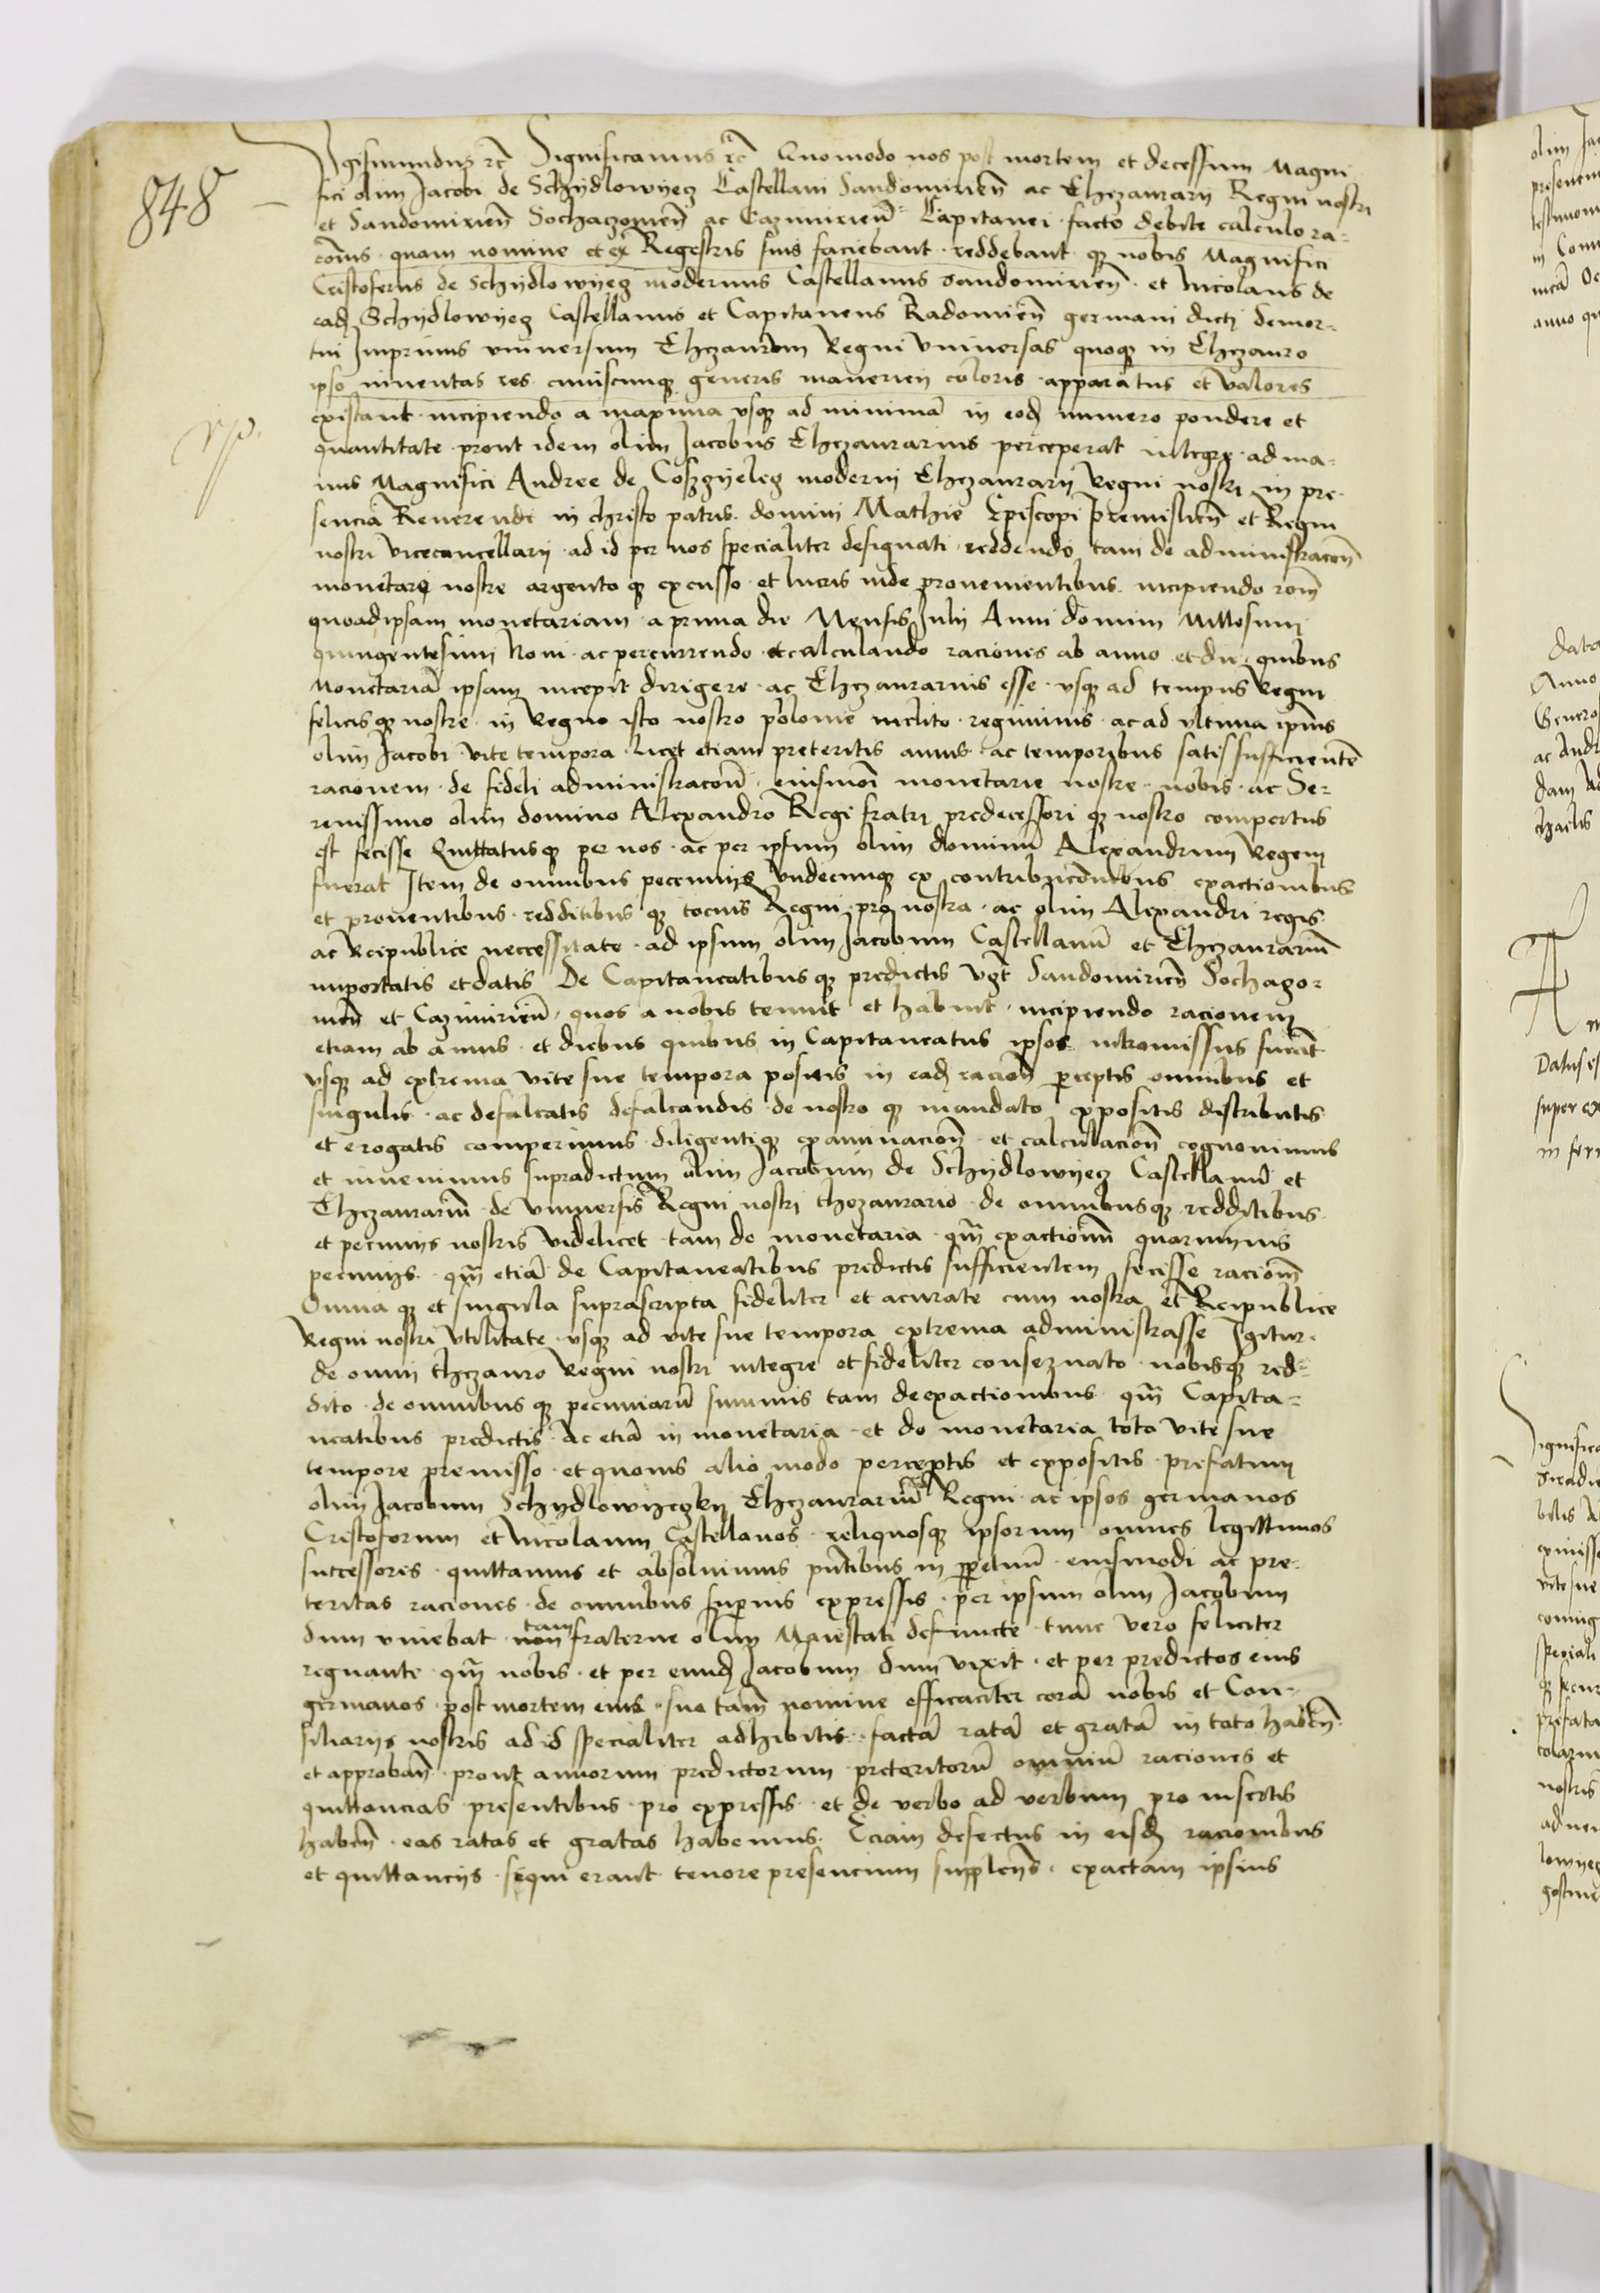 848
Igismundus rc̄ Significamus rc̄ Quomodo nos post mortem et decessum Magni
fici olim Jacobi de Schydlowyecz Castellani Sandomirien̄ ac Thezaurarij Regni nostri
et Sandomirien̄ Sochaczovien̄ ac Cazimirien̄ Capitanei facto debite calculo ra=
cōnis quam nomine et ex Regestris suis faciebant reddebant qz nobis Magnifici
Cristoferus de Schydlowyecz modernus Castellanus Sandomirien̄ et Nicolaus de
eadꝫ Schydlowyecz Castellanus et Capitaneus Radomien̄ germani dicti demor=
tui Imprimis vniuersum Thezaurum Regni Vniuersas quoqz in Thezauro
ipso inuentas res cuiuscunqz generis manerien coloris apparatus et valores
existant incipiendo a maxima vsqz ad minimā in eodꝫ numero pondere et
quantitate prout idem olim Jacobus Thezaurarius perceperat integre ad ma=
nus Magnifici Andree de Cosczyelecz moderni Thezaurarij Regni nostri in pre
senciā Reuerendi in christo patris domini Mathie Episcopi Premislien̄ et Regni
nostri vicecancellarij ad id per nos specialiter designati reddendo tam de administracōn̄
monetarie nostre argento qz excusso et lucris inde prouenientibus incipiendo rōnē
quoad ipsam monetariam a prima die Mensis Julij Anni domini Millesimi
quingentesimi Noni ac percurrendo et calculando raciones ab anno et die quibus
Monetariā ipsam incepit dirigere ac Thezaurarius esse vsqz ad tempus Regni
felicis qz nostre in Regno isto nostro polonie inclito regiminis ac ad vltima ipsius
olim Jacobi vite tempora Licet etiam preteritis annis ac temporibus satis sufficientē
racionem de fideli administracōnē eiusmōi monetarie nostre nobis ac Se=
renissimo olim domino Alexandro Regi fratri predecessori qz nostro compertus
est fecisse Quittatusqz per nos ac per ipsum olim dominū Alexandrum Regem
fuerat Item de omnibus pecunijs vndecunqz ex contribucōnibus exactionibus
et prouentibus redditibus qz tocius Regni pro nostra ac olim Alexandri regis
ac Reipublice neccessitate ad ipsum olim Jacobum Castellanū et Thezaurariū
importatis et datis De Capitaneatibus qz predictis vzt Sandomirien̄ Sochaczo=
uien̄ et Cazimirien̄ quos a nobis tenuit et habuit incipiendo racionem
etiam ab annis et diebus quibus in Capitaneatus ipsos intromissus fuerāt
vsqz ad extrema vite sue tempora positis in eadꝫ raciōn̄ perceptis omnibus et
singulis ac defalcatis defalcandis de nostro qz mandato expositis distributis
et erogatis comperimus diligentiqz examinacion̄ et calculacion̄ cognouimus
et inuenimus supradictum olim Jacobum de Schydlowyecz Castellanū et
Thezaurariū de vniuersis Regni nostri thezaurario de omnibusqz redditibus
et pecunijs nostris videlicet tam de monetaria qm̄ exactionū quarumuis
pecunijs qm̄ etiā de Capitaneatibus predictis sufficientem fecisse racionē
Omnia qz et singula suprascripta fideliter et acurate cum nostra et Reipublice
Regni nostri vtilitate vsqz ad vite sue tempora extrema administrasse Igitur
de omni thezauro Regni nostri integre et fideliter conseruato nobisqz red=
dito de omnibus qz pecuniarū summis tam de exactionibus qm̄ Capita=
neatibus predictis ac etiā in monetaria et de monetaria tota vite sue
tempore premisso et quouis alio modo perceptis et expositis prefatum
olim Jacobum Schydlowyeczky Thezaurariū Regni ac ipsos germanos
Cristoforum et Nicolaum Castellanos reliquosqz ipsorum omnes legittimos
successoris quittamus et absoluimus pn̄tibus in ppetuū eiusmodi ac pre=
teritas raciones de omnibus superius expressis per ipsum olim Jacobum
dum viuebat non tam fraterne olim Maiestati defuncte tunc vero feliciter
regnante qm̄ nobis et per eundꝫ Jacobum dum vixit et per predictos eius
germanos post mortem eius suo tam̄ nomine efficaciter corā nobis et Con=
siliarijs nostris ad id specialiter adhibitis factā ratā et gratā in toto haben̄
et approban̄ prout annorum predictorum preteritorū omniū raciones et
quittancias presentibus pro expressis et de verbo ad verbum pro insertis
haben̄ eas ratas et gratas habemus Eciam defectus in eisdꝫ racionibus
et quittancijs siqui erant tenore presencium supplen̄s exactam ipsius